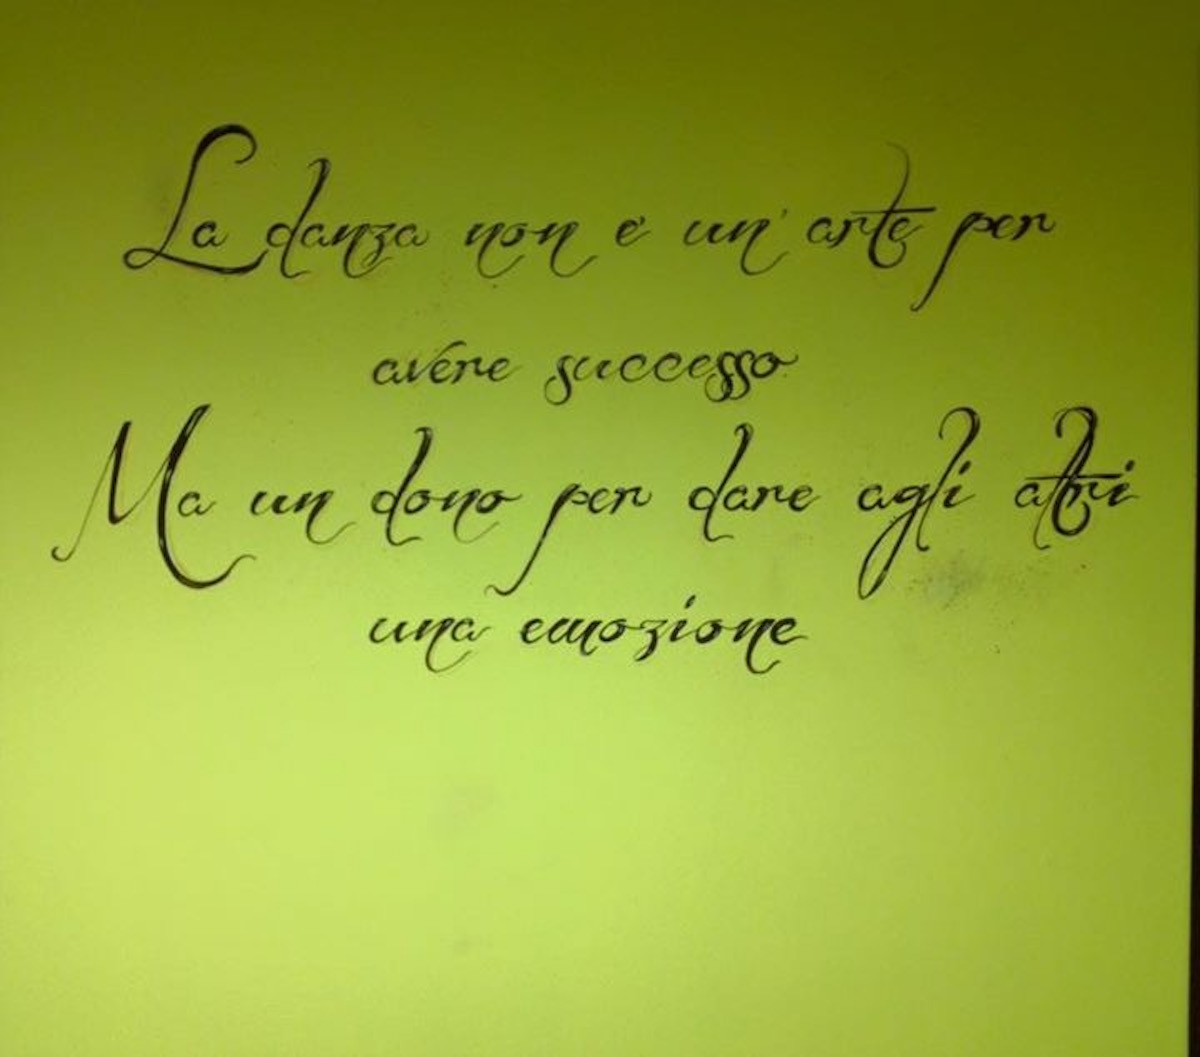 La danza non e' un' arte per
avere successo
Ma un dono per dare agli altri
una emozione